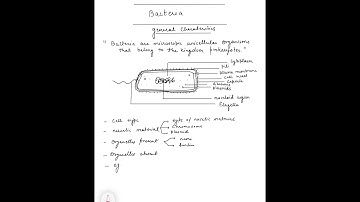 Bacteria
general Characteristics
"Bacteria are microscopic unicellular organisms
that belong to the kingdom prokaryotes."
cytoplasm
Pili
plasma membrane
cell wall
capsule
plasmids
nucleoid region
flagella
- Cell type
- nucleic material
type of nucleic material
chromosome
plasmid
- Organelles present
name
function
- Organelles absent
- Of